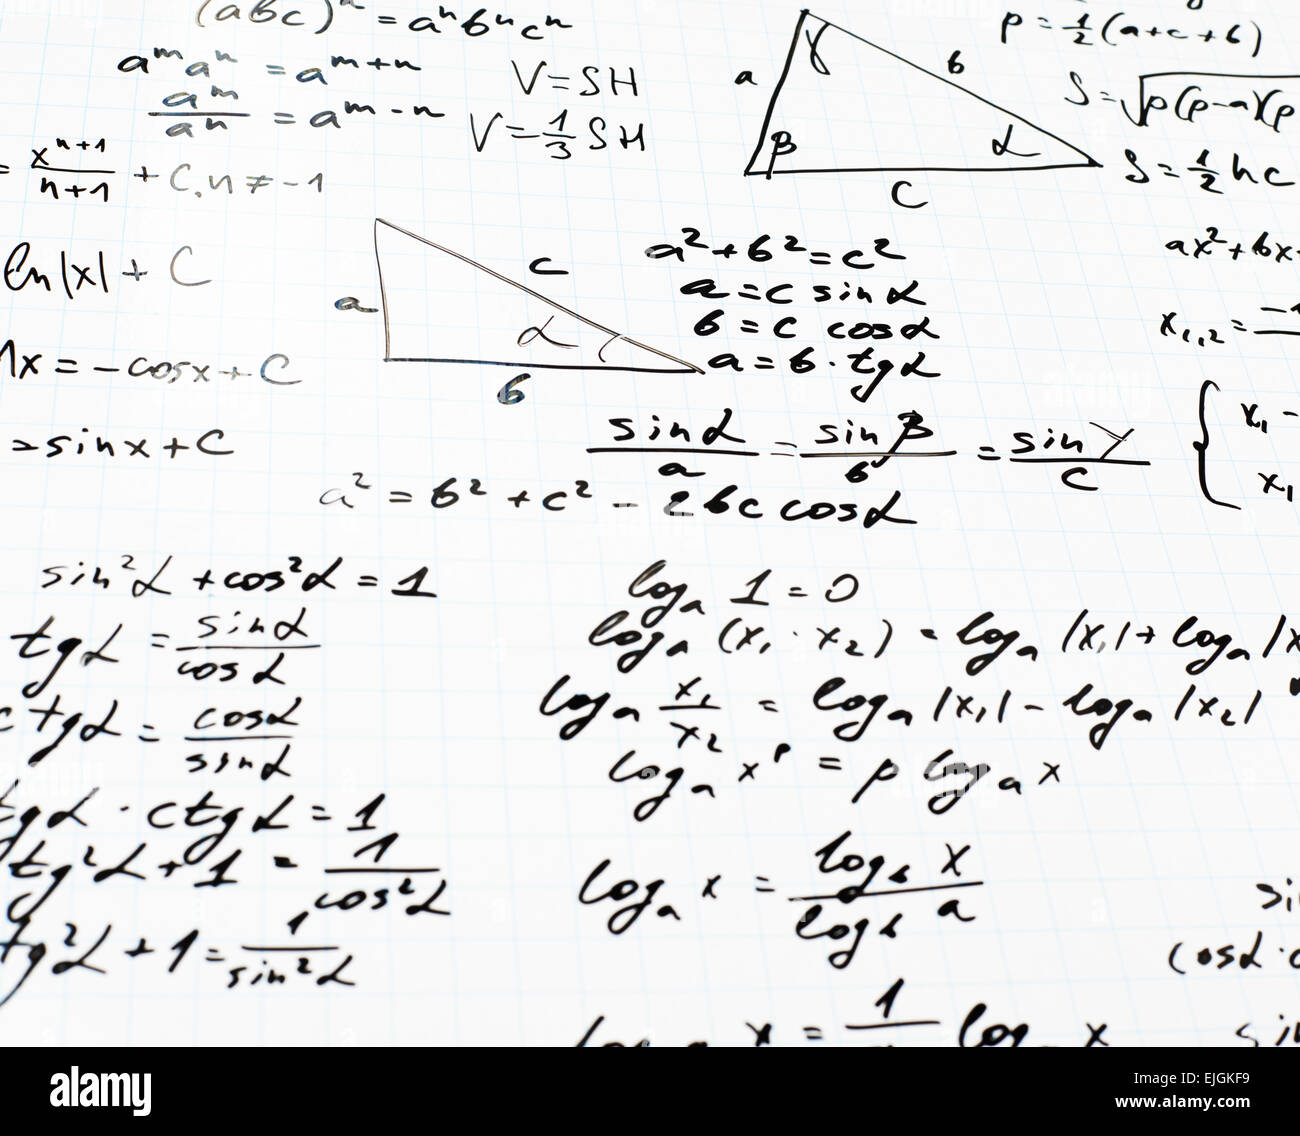 (abc)ⁿ = aⁿbⁿcⁿ
aᵐaⁿ = aᵐ⁺ⁿ
aᵐ/aⁿ = aᵐ⁻ⁿ
= xⁿ⁺¹/n+1 + C, n ≠ -1
ln|x| + C
x = -cosx + C
= sinx + C
V = SH
V = 1/3 SH
a γ b
β α
c
p = 1/2 (a+c+b)
S = √p(p-a)(p
S = 1/2 hc
a c α b
a² + b² = c²
a = c sinα
b = c cosα
a = b · tgα
sinα/a = sinβ/b = sinγ/c
a² = b² + c² - 2bc cosα
ax² + bx
x₁,₂ =
x₁ -
x₁
sin²α + cos²α = 1
tgα = sinα/cosα
ctgα = cosα/sinα
tgα · ctgα = 1
tg²α + 1 = 1/cos²α
tg²α + 1 = 1/sin²α
logₐ 1 = 0
logₐ (x₁ · x₂) = logₐ |x₁| + logₐ |x
logₐ x₁/x₂ = logₐ |x₁| - logₐ |x₂|
logₐ xᵖ = p logₐ x
logₐ x = log_b x/log_b a
x = 1 log x
cosα ·
alamy
Image ID: EJGKF9
www.alamy.com